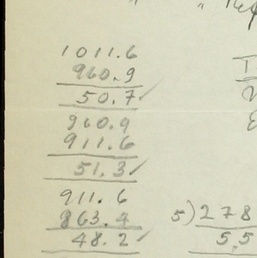 1011.6
960.9
50.7✓
960.9
911.6
51.3✓
911.6
863.4
48.2✓
5)278
5.5